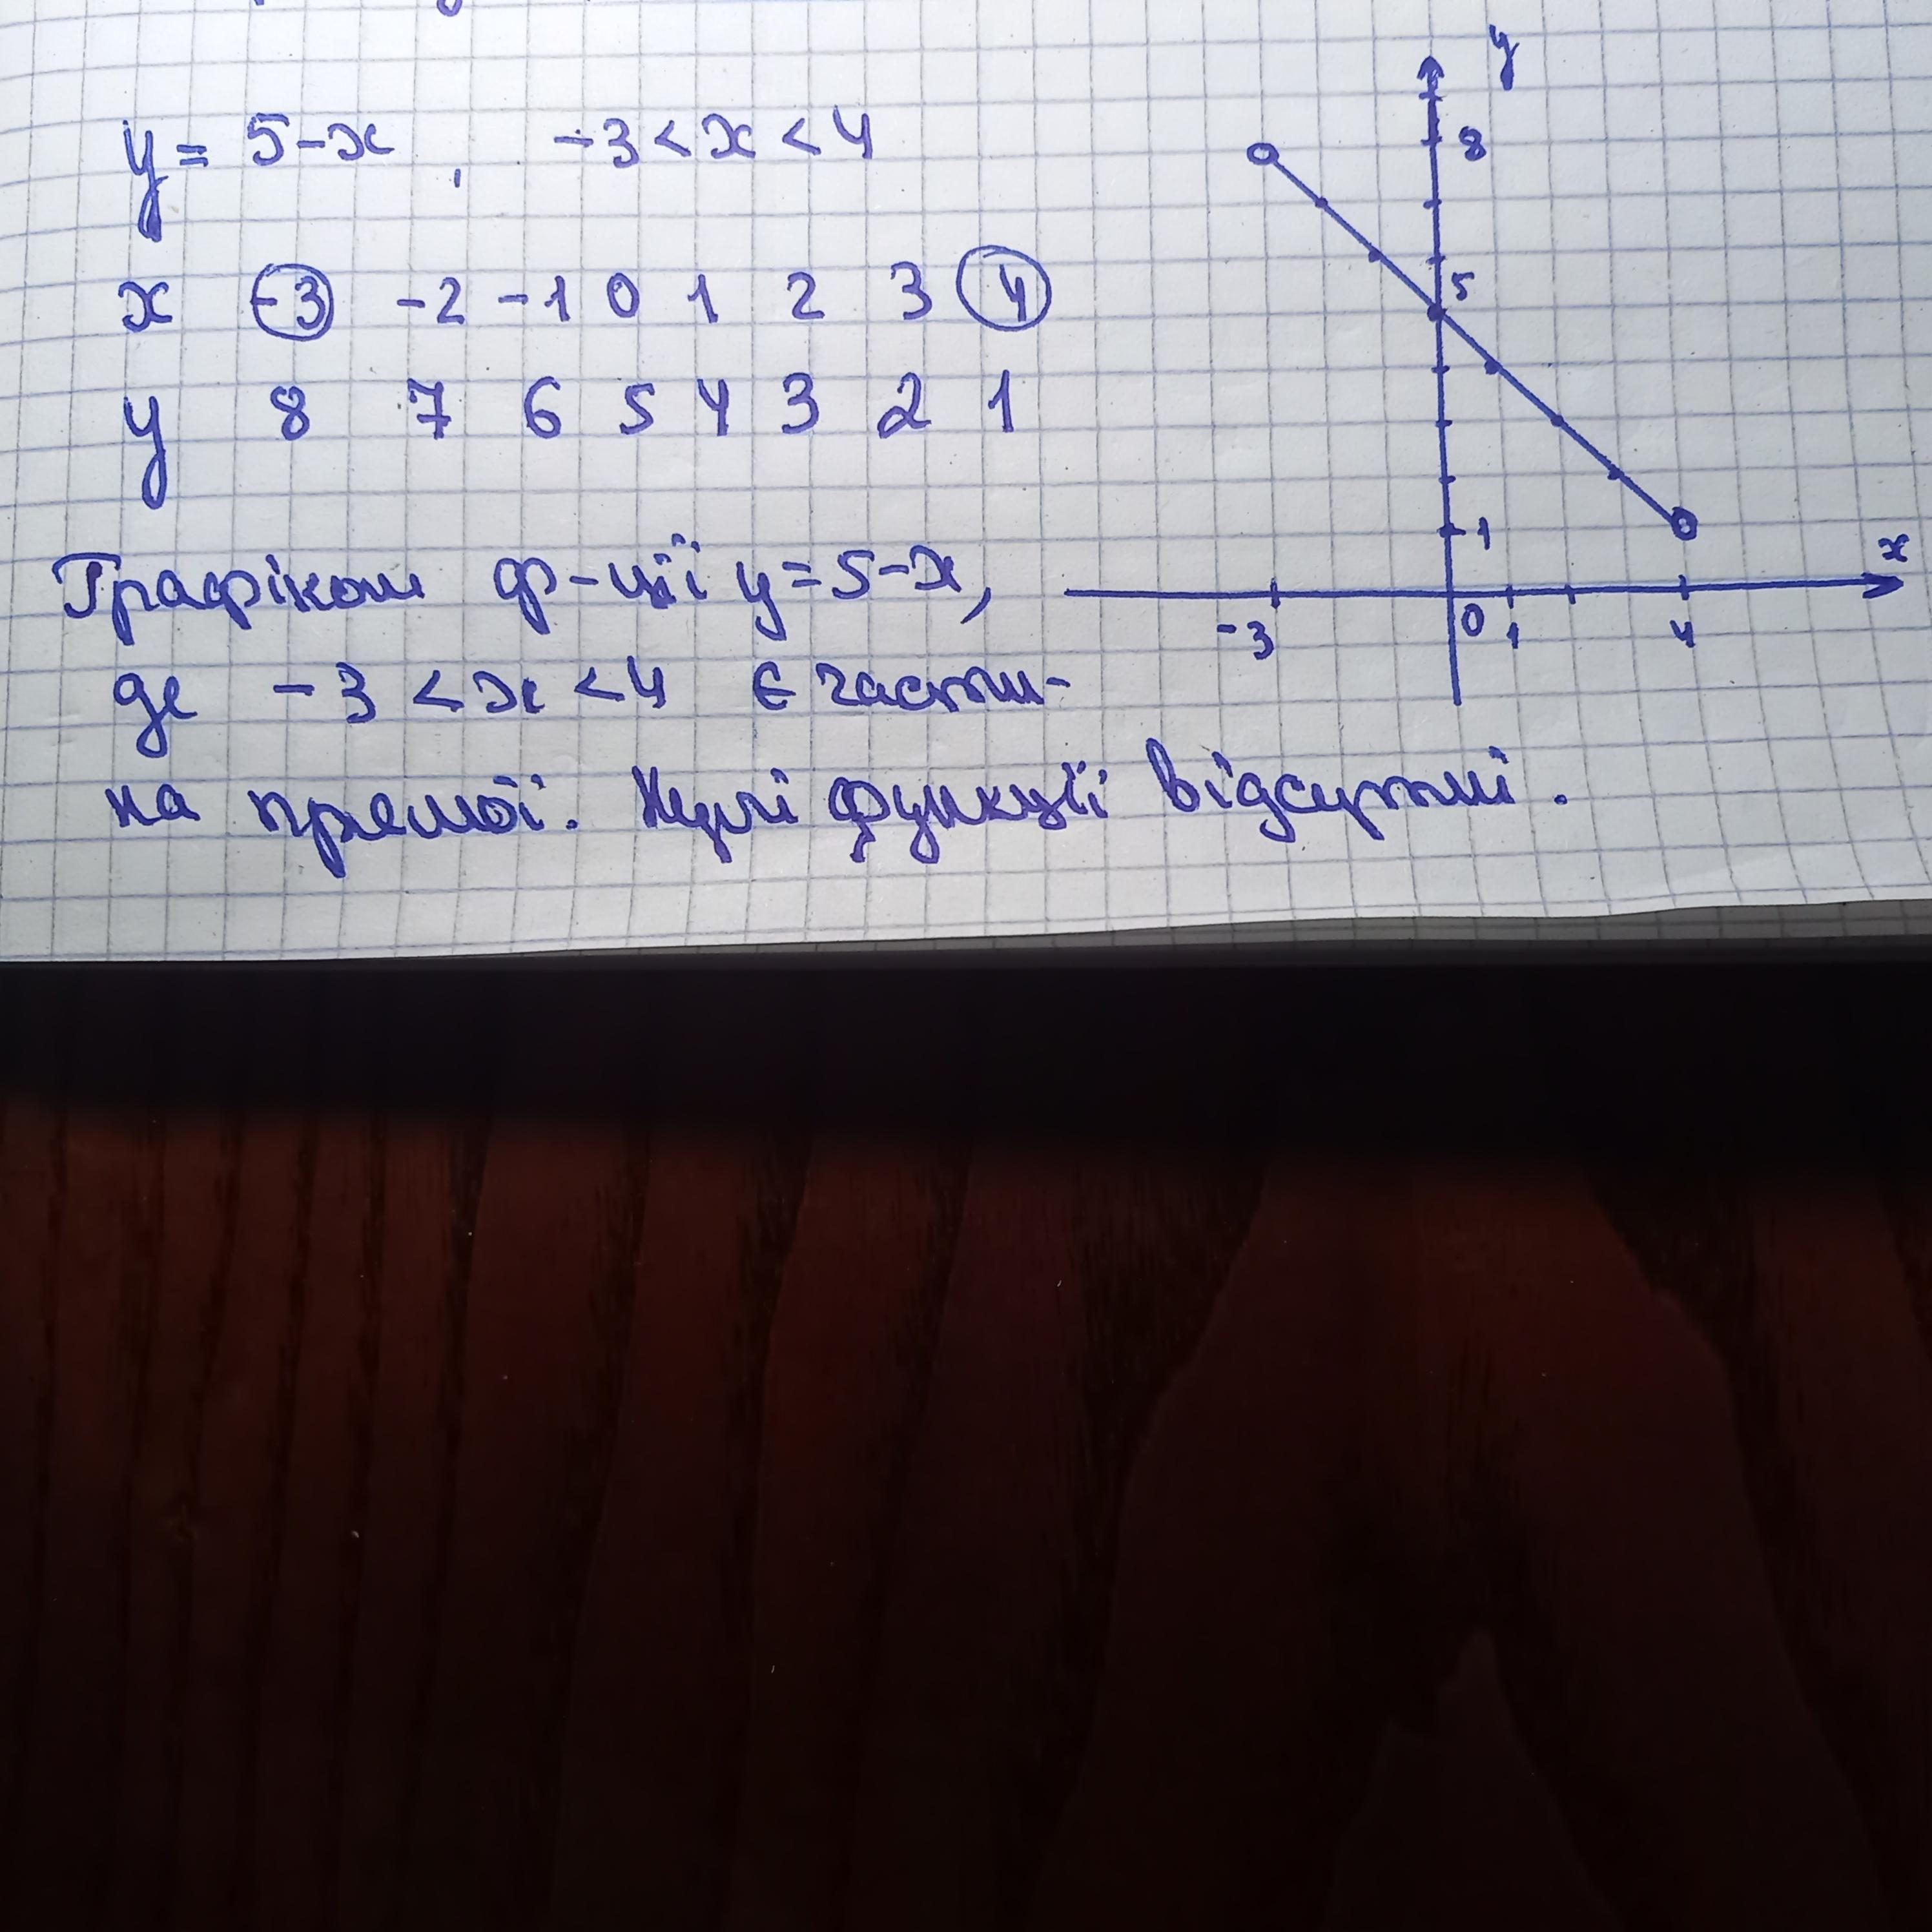 y = 5-x , -3 < x < 4
x -3 -2 -1 0 1 2 3 4
y 8 7 6 5 4 3 2 1
Графіком ф-ції y = 5-x,
де -3 < x < 4 є части-
на прямої. Нулі функції відсутні.
y
8
5
1
x
-3 0 1 4